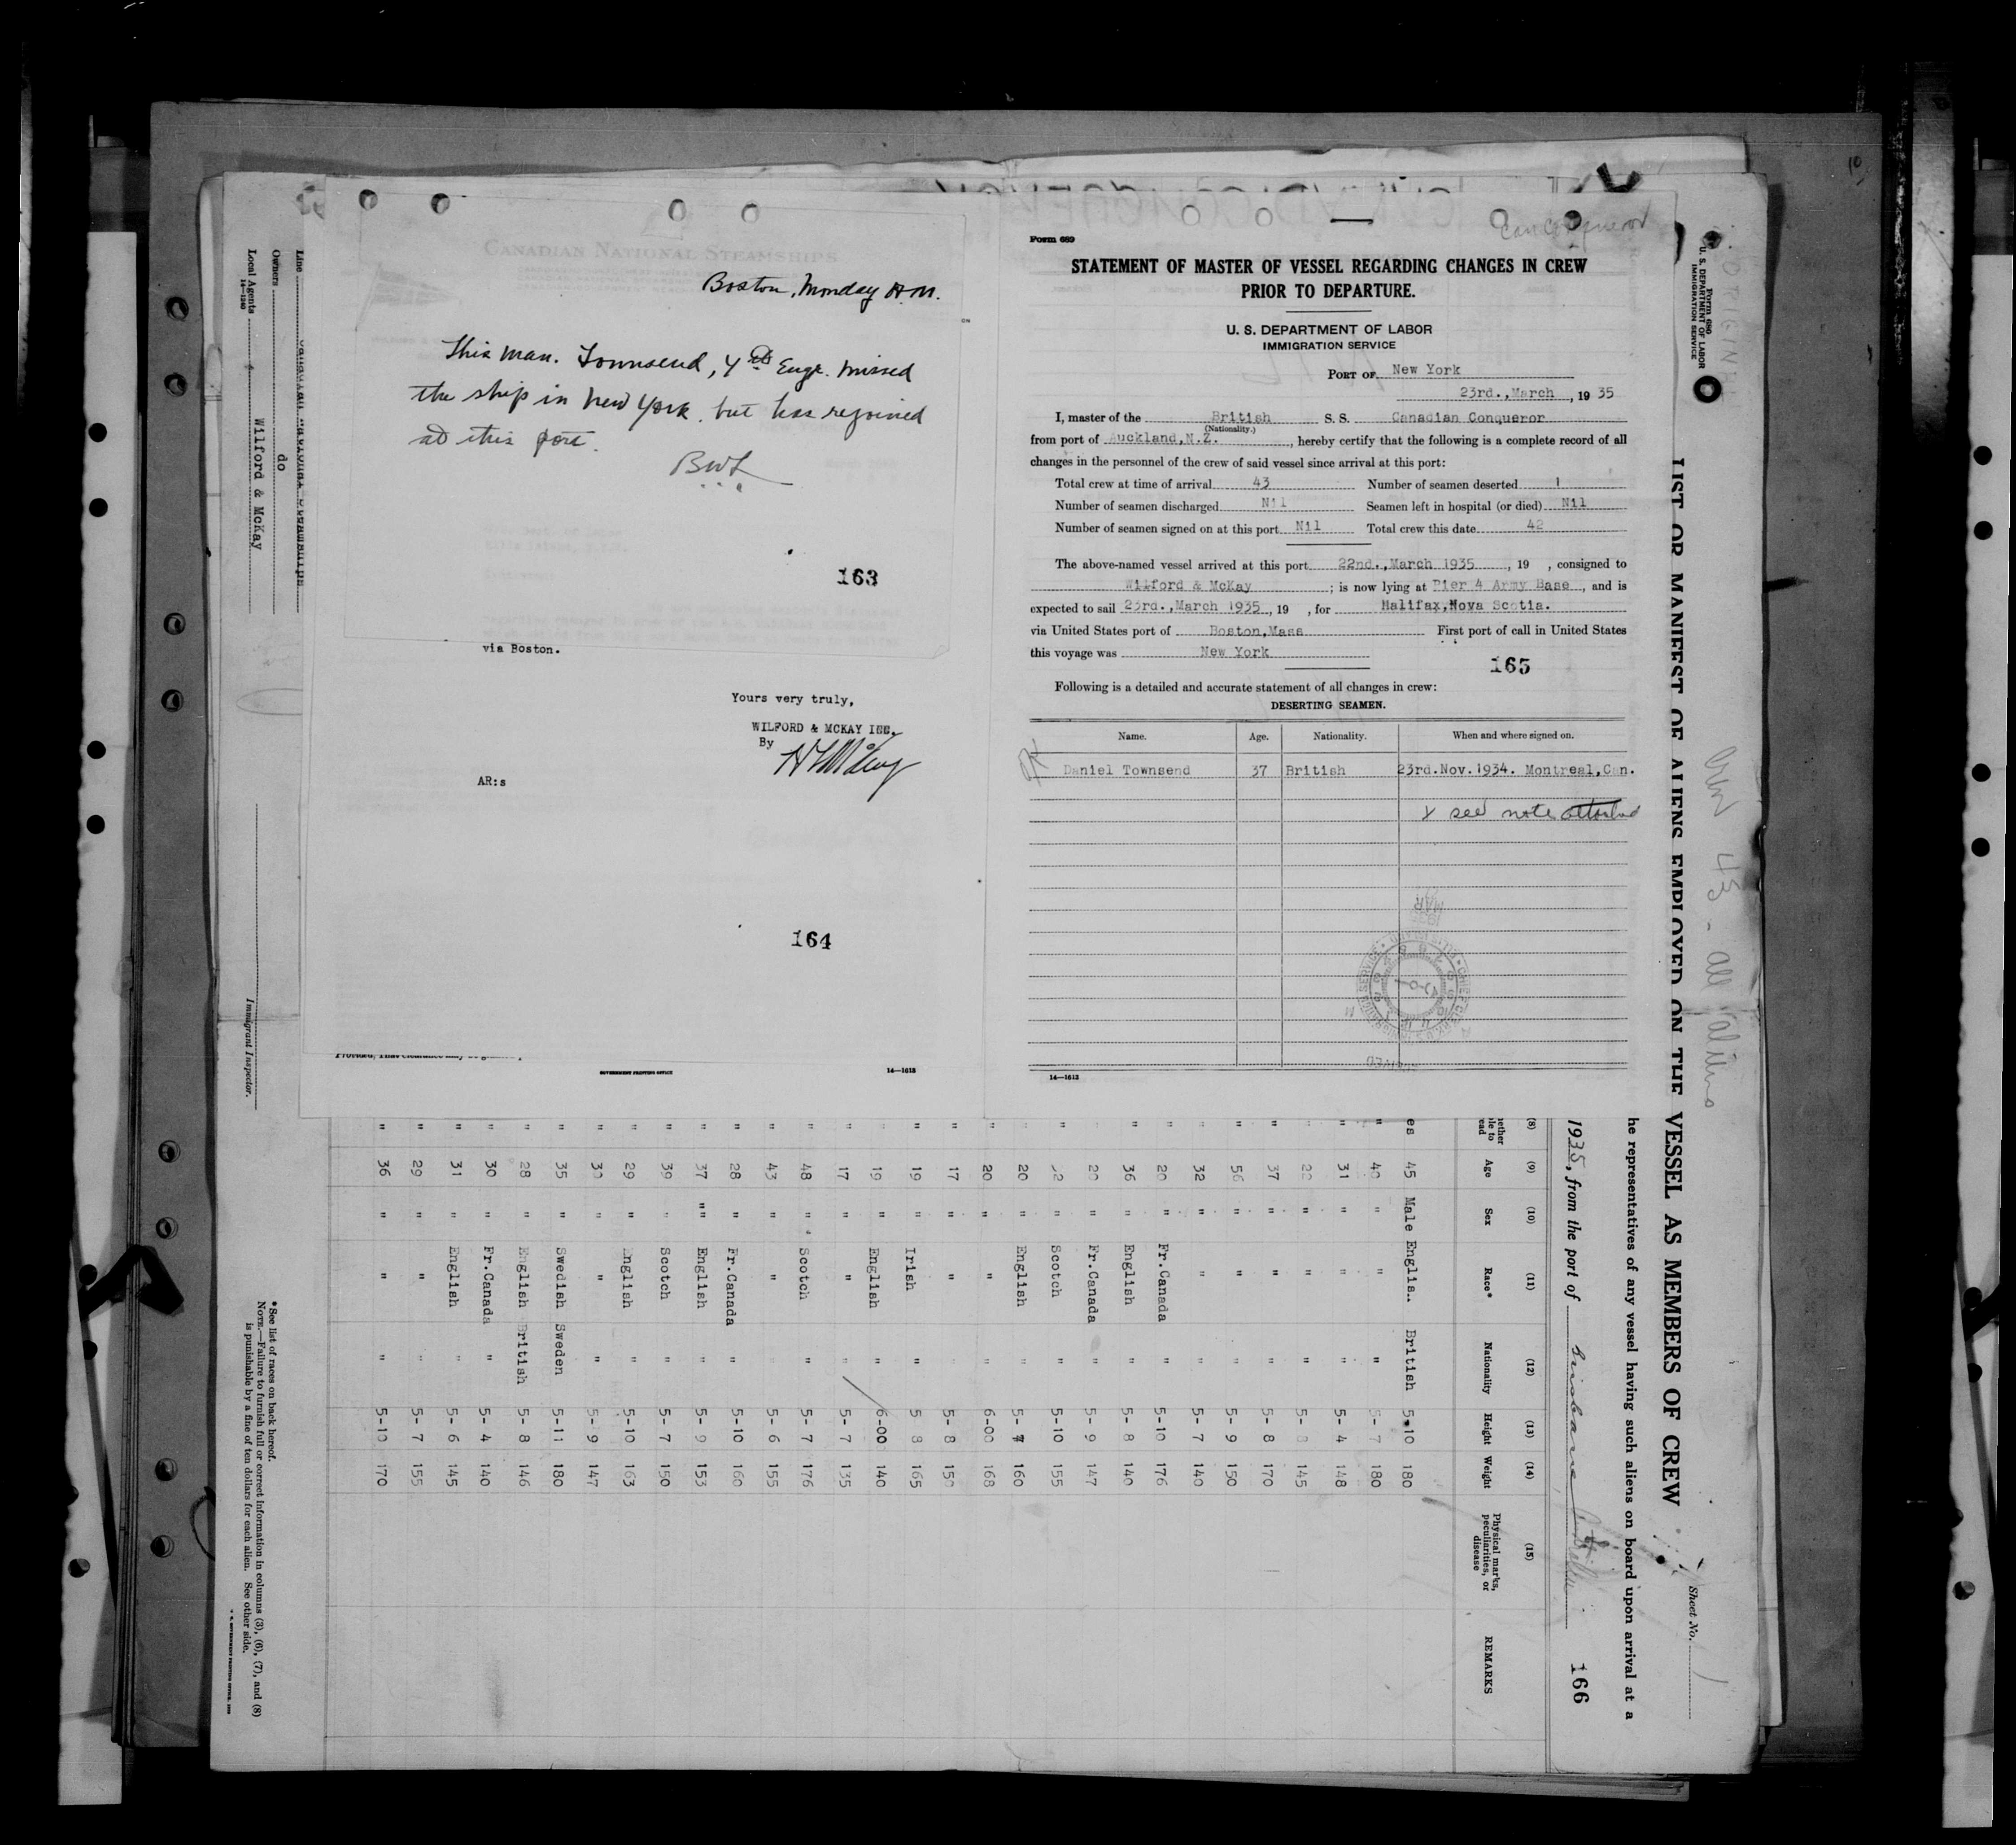 Boston, Monday A.M.
This man. Townsend, 4th Engr. missed
the ship in New York. but has rejoined
at this port.
BWL
163
via Boston.
Yours very truly,
WILFORD & MCKAY INC.
By
AR:s
164
GOVERNMENT PRINTING OFFICE
14—1613
CanConqueror
Form 689
STATEMENT OF MASTER OF VESSEL REGARDING CHANGES IN CREW
PRIOR TO DEPARTURE.
U. S. DEPARTMENT OF LABOR
IMMIGRATION SERVICE
PORT OF New York
23rd.,March , 19 35
I, master of the British S. S. Canadian Conqueror
(Nationality.)
from port of Auckland,N.Z. , hereby certify that the following is a complete record of all
changes in the personnel of the crew of said vessel since arrival at this port:
Total crew at time of arrival 43 Number of seamen deserted 1
Number of seamen discharged Nil Seamen left in hospital (or died) Nil
Number of seamen signed on at this port Nil Total crew this date 42
The above-named vessel arrived at this port 22nd.,March 1935 , 19 , consigned to
Wilford & McKay ; is now lying at Pier 4 Army Base , and is
expected to sail 23rd.,March 1935 , 19 , for Halifax,Nova Scotia.
via United States port of Boston,Mass First port of call in United States
this voyage was New York
165
Following is a detailed and accurate statement of all changes in crew:
DESERTING SEAMEN.
Name. Age. Nationality. When and where signed on.
Daniel Townsend 37 British 23rd.Nov.1934. Montreal,Can.
x see note attached
14—1613
Form 680
U. S. DEPARTMENT OF LABOR
IMMIGRATION SERVICE
Sheet No. 1
Crew 43 - all aliens
LIST OR MANIFEST OF ALIENS EMPLOYED ON THE VESSEL AS MEMBERS OF CREW
he representatives of any vessel having such aliens on board upon arrival at a
1935, from the port of Brisbane
166
(8) (9) (10) (11) (12) (13) (14) (15)
Age Sex Race* Nationality Height Weight Physical marks, peculiarities, or disease REMARKS
es 45 Male Englis. British 5-10 180
" 40 " " " 5-7 180
" 31 " " " 5-4 148
" " " " 5- 145
" 37 " " " 5-8 170
" 56 " " " 5-9 150
" 32 " " " 5-7 140
" 20 " Fr.Canada " 5-10 176
" 36 " English " 5-8 140
20 " Fr.Canada " 5-9 147
" " Scotch " 5-10 155
" 20 " English " 5- 160
" 20 " " " 6-00 168
" 17 " " 5-8
" 19 " Irish " 5 8 165
" 19 " English " 6-00 140
" 17 " " " 5-7 135
" 48 " Scotch " 5-7 176
" 43 " " 5-6 155
" 28 " Fr.Canada " 5-10 160
" 37 "" English " 5-9 153
" 39 " Scotch " 5-7 150
" 29 " English " 5-10 163
" " " " 5-9 147
" 35 " Swedish Sweden 5-11 180
" 28 " English British 5-8 146
" 30 " Fr.Canada " 5-4 140
" 31 " English " 5-6 145
" 29 " " " 5-7 155
" 36 " " " 5-10 170
Line
Owners do
Local Agents Wilford & McKay
14—1240
Immigrant Inspector.
*See list of races on back hereof.
NOTE.—Failure to furnish full or correct information in columns (3), (6), (7), and (8)
is punishable by a fine of ten dollars for each alien. See other side.